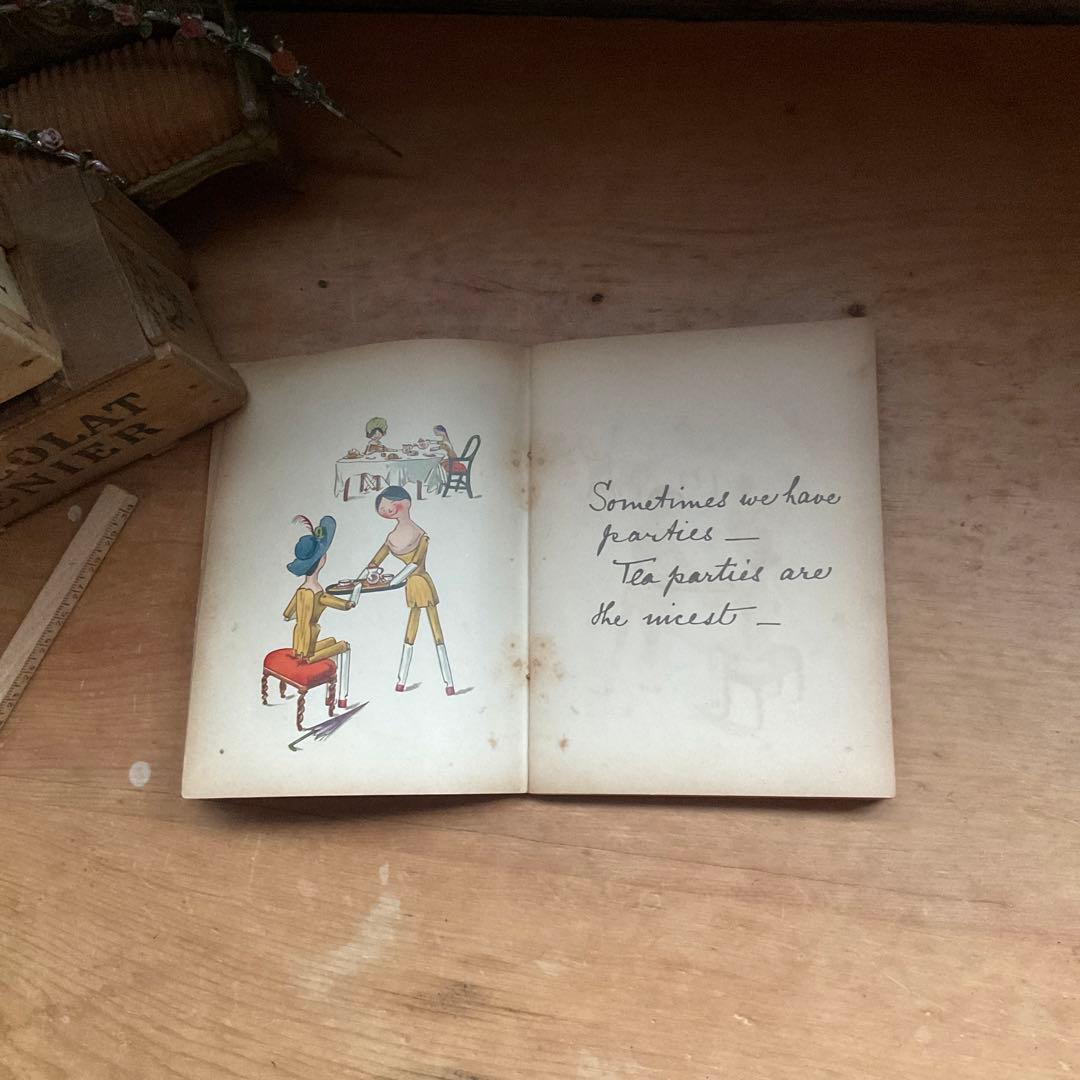 OLAT
ENIER
Sometimes we have
parties —
Tea parties are
the nicest —